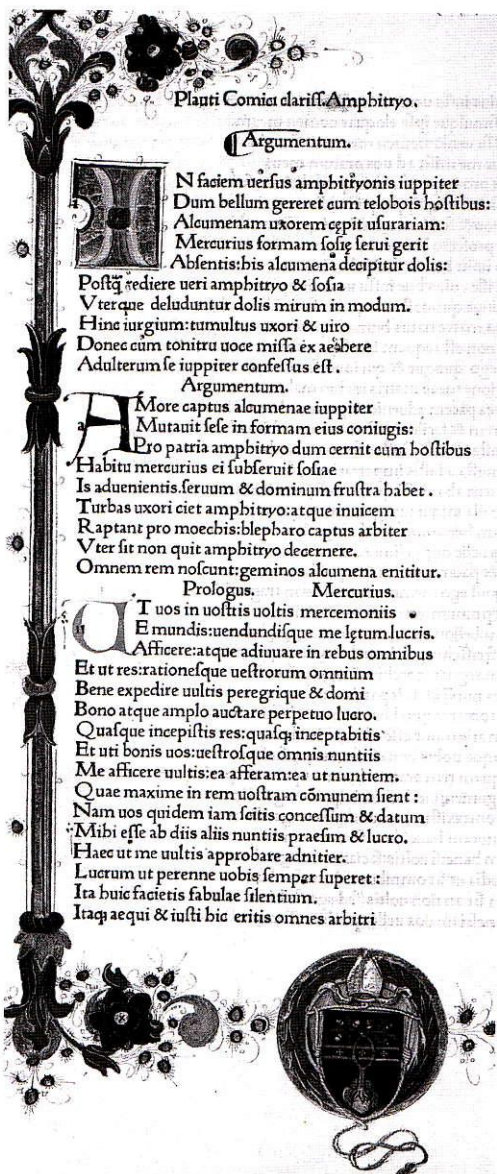 Plauti Comici clariss. Amphitryo.
Argumentum.
IN faciem uersus amphitryonis iuppiter
Dum bellum gereret cum telobois hostibus:
Alcumenam uxorem cępit usurariam:
Mercurius formam sosię serui gerit
Absentis: his alcumenā decipitur dolis:
Postq̄ rediere ueri amphitryo & sosia
Vterque deluduntur dolis mirum in modum.
Hinc iurgium: tumultus uxori & uiro
Donec cum tonitru uoce missa ex aethere
Adulterum se iuppiter confessus est.
Argumentum.
AMore captus alcumenae iuppiter
Mutauit sese in formam eius coniugis:
Pro patria amphitryo dum cernit cum hostibus
Habitu mercurius ei subseruit sosiae
Is aduenientis. seruum & dominum frustra habet.
Turbas uxori ciet amphitryo: atque inuicem
Raptant pro moechis: blepharo captus arbiter
Vter sit non quit amphitryo decernere.
Omnem rem noscunt: geminos alcumena enititur.
Prologus. Mercurius.
VT uos in uostris uoltis mercemoniis
Emundis: uendundisque me lętum. lucris.
Afficere: atque adiuuare in rebus omnibus
Et ut res: rationesque uestrorum omnium
Bene expedire uultis peregrique & domi
Bono atque amplo auctare perpetuo lucro.
Quasque incepistis res: quasq; inceptabitis
Et uti bonis uos: uestrosque omnis nuntiis
Me afficere uultis: ea afferam: ea ut nuntiem.
Quae maxime in rem uostram cōmunem sient:
Nam uos quidem iam scitis concessum & datum
Mihi esse ab diis aliis nuntiis praesim & lucro.
Haec ut me uultis approbare adnitier.
Lucrum ut perenne uobis semper superet:
Ita huic facietis fabulae silentium.
Itaq; aequi & iusti hic eritis omnes arbitri